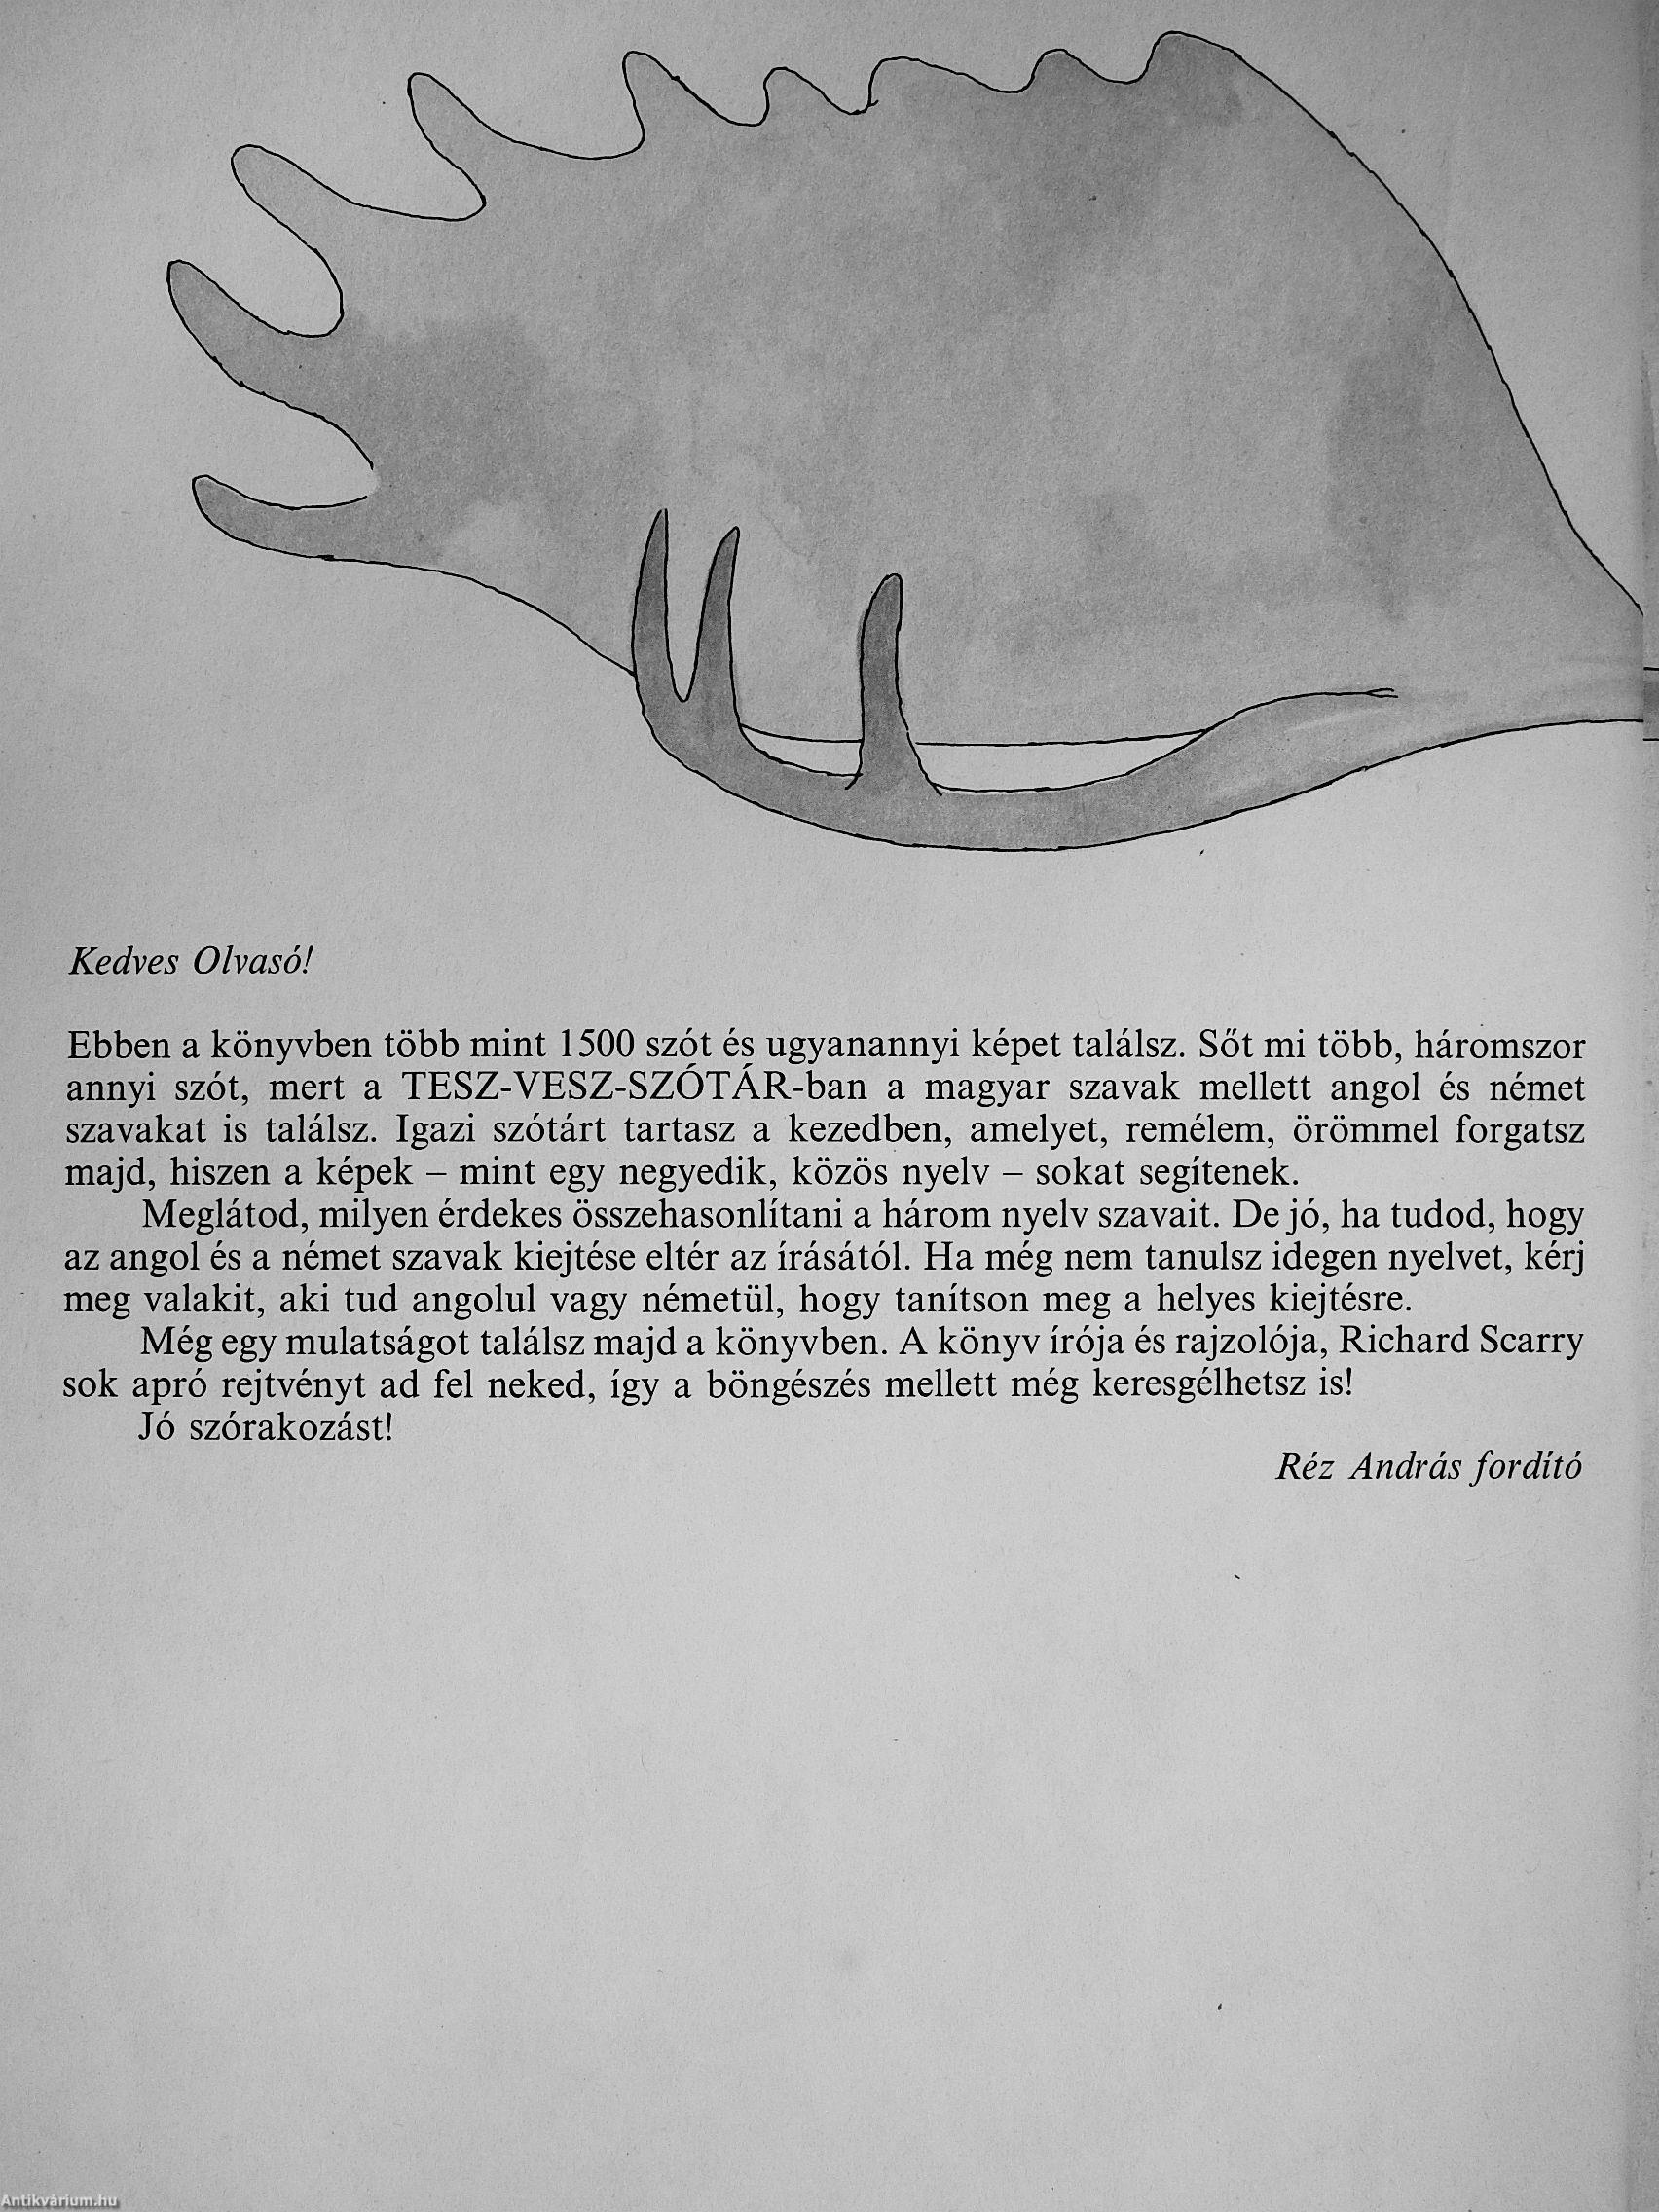 Kedves Olvasó!
Ebben a könyvben több mint 1500 szót és ugyanannyi képet találsz. Sőt mi több, háromszor
annyi szót, mert a TESZ-VESZ-SZÓTÁR-ban a magyar szavak mellett angol és német
szavakat is találsz. Igazi szótárt tartasz a kezedben, amelyet, remélem, örömmel forgatsz
majd, hiszen a képek – mint egy negyedik, közös nyelv – sokat segítenek.
Meglátod, milyen érdekes összehasonlítani a három nyelv szavait. De jó, ha tudod, hogy
az angol és a német szavak kiejtése eltér az írásától. Ha még nem tanulsz idegen nyelvet, kérj
meg valakit, aki tud angolul vagy németül, hogy tanítson meg a helyes kiejtésre.
Még egy mulatságot találsz majd a könyvben. A könyv írója és rajzolója, Richard Scarry
sok apró rejtvényt ad fel neked, így a böngészés mellett még keresgélhetsz is!
Jó szórakozást!
Réz András fordító
Antikvárium.hu